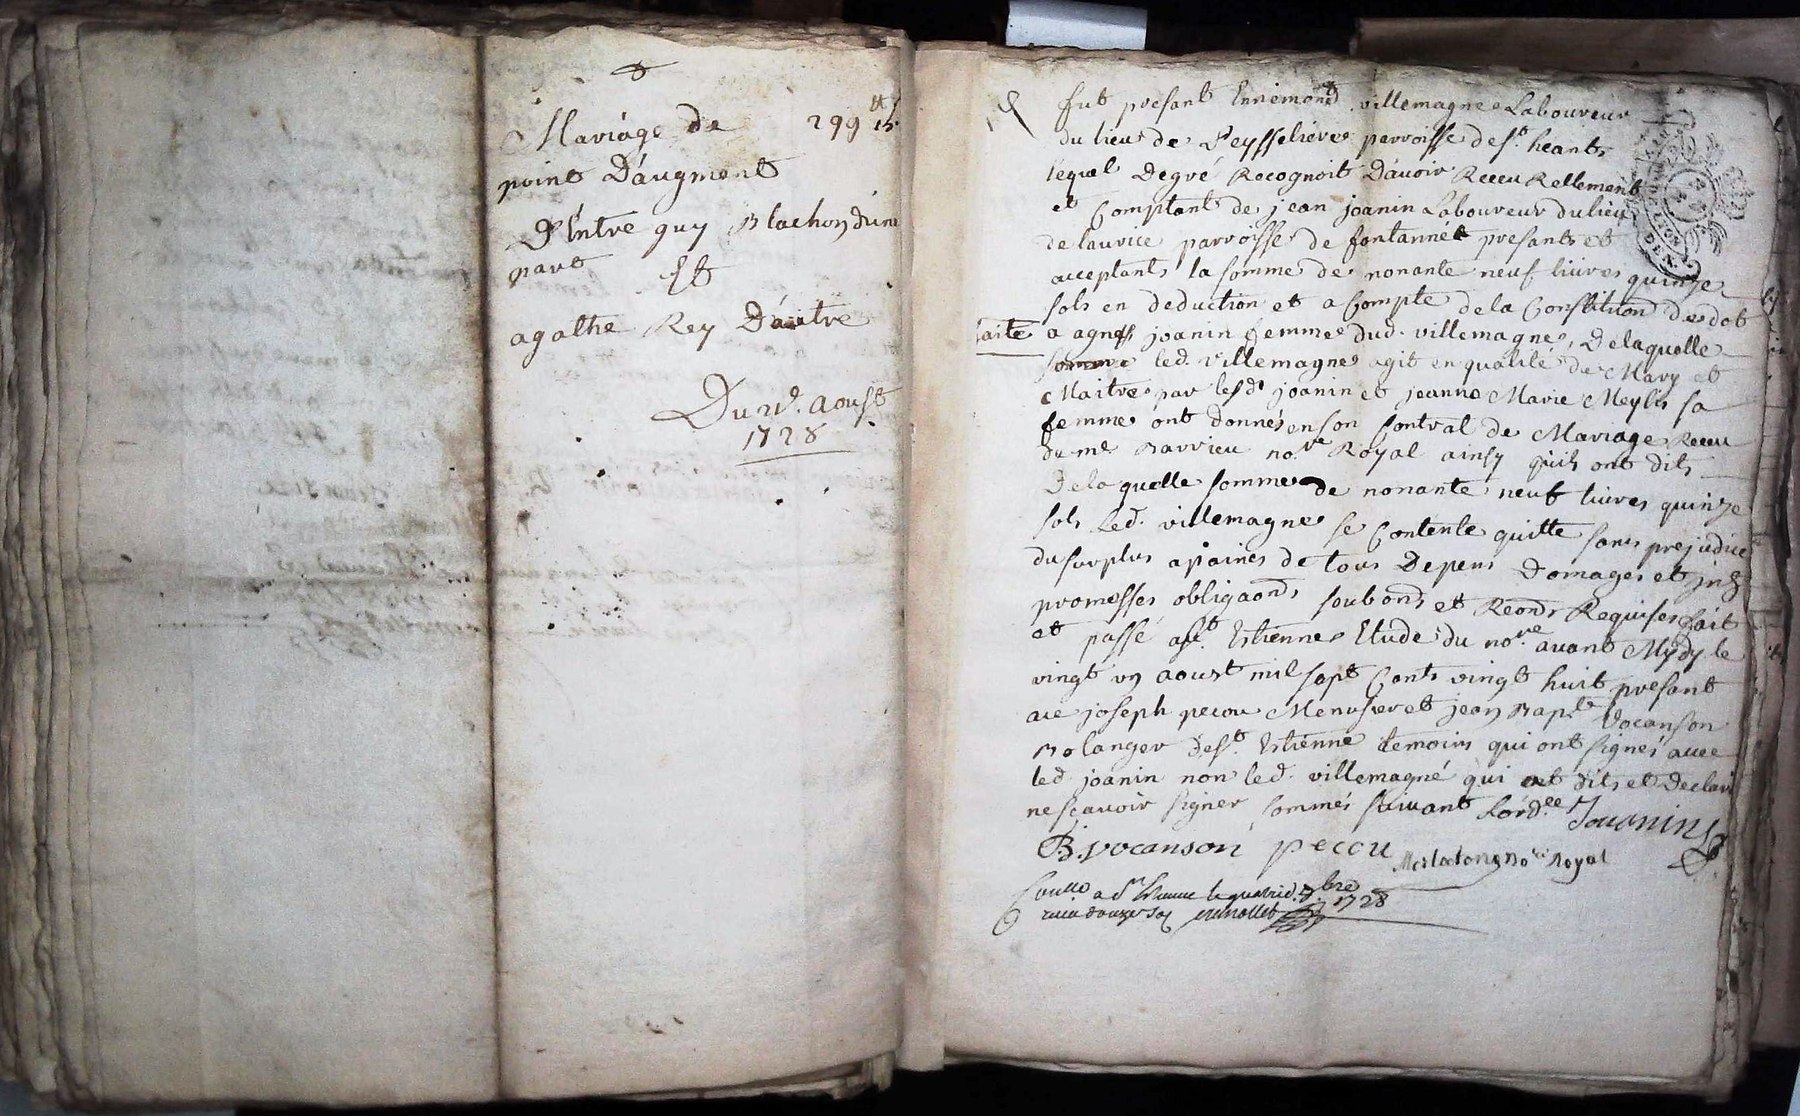 Mariage de 299 ₶ 15
point D'augment
D'Entre guy Blachon d'une
part Et
agathe Rey D'autre
Du 21e. aoust
1728
fut presant Ennemond villemagne Laboureur
du lieu de Veysseliere parroisse de st. heant
lequel De gré Recognoit D'avoir Receu Rellement
et Comptant de jean joanin Laboureur du lieu
de laurice parroisse de fontannés presants et
acceptants la somme de nonante neuf livres quinze
sols en deduction et a Compte de la Constitution de dot
faite a agnes joanin femme dud. villemagne, De laquelle
somme led. villemagne agit en qualité de Mary et
Maitre par lesd. joanin et jeanne Marie Meylis sa
femme ont donnés en son Contrat de Mariage Receu
du me Barrieu nore Royal ainsy quils ont dits
De la quelle somme de nonante neuf livres quinze
sols Led. villemagne se Contente quitte sans prejudice
du surplus a paines de tous Depens Domages et
promesses obligaons soubons et Reons Requises fait
et passé a st. Estienne Etude du nore. avant Mydy le
vingt un aoust mil sept Cents vingt huit presant
joseph pecou Menusier et jean Baple Vocanson
Bolanger de st. Estienne temoins qui ont signés avec
led joanin non led. villemagne qui ont dits et Declaré
ne sçavoir signer sommés suivant Lordce Jouanin
B. vocanson pecou nore Royal
a st Etienne le 7bre 1728
receu douze sols